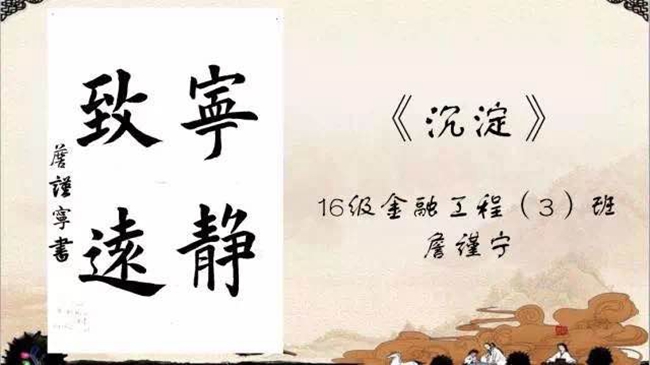 寧静
致遠
詹謹寧書
《沉淀》
16级金融工程（3）班
詹谨宁